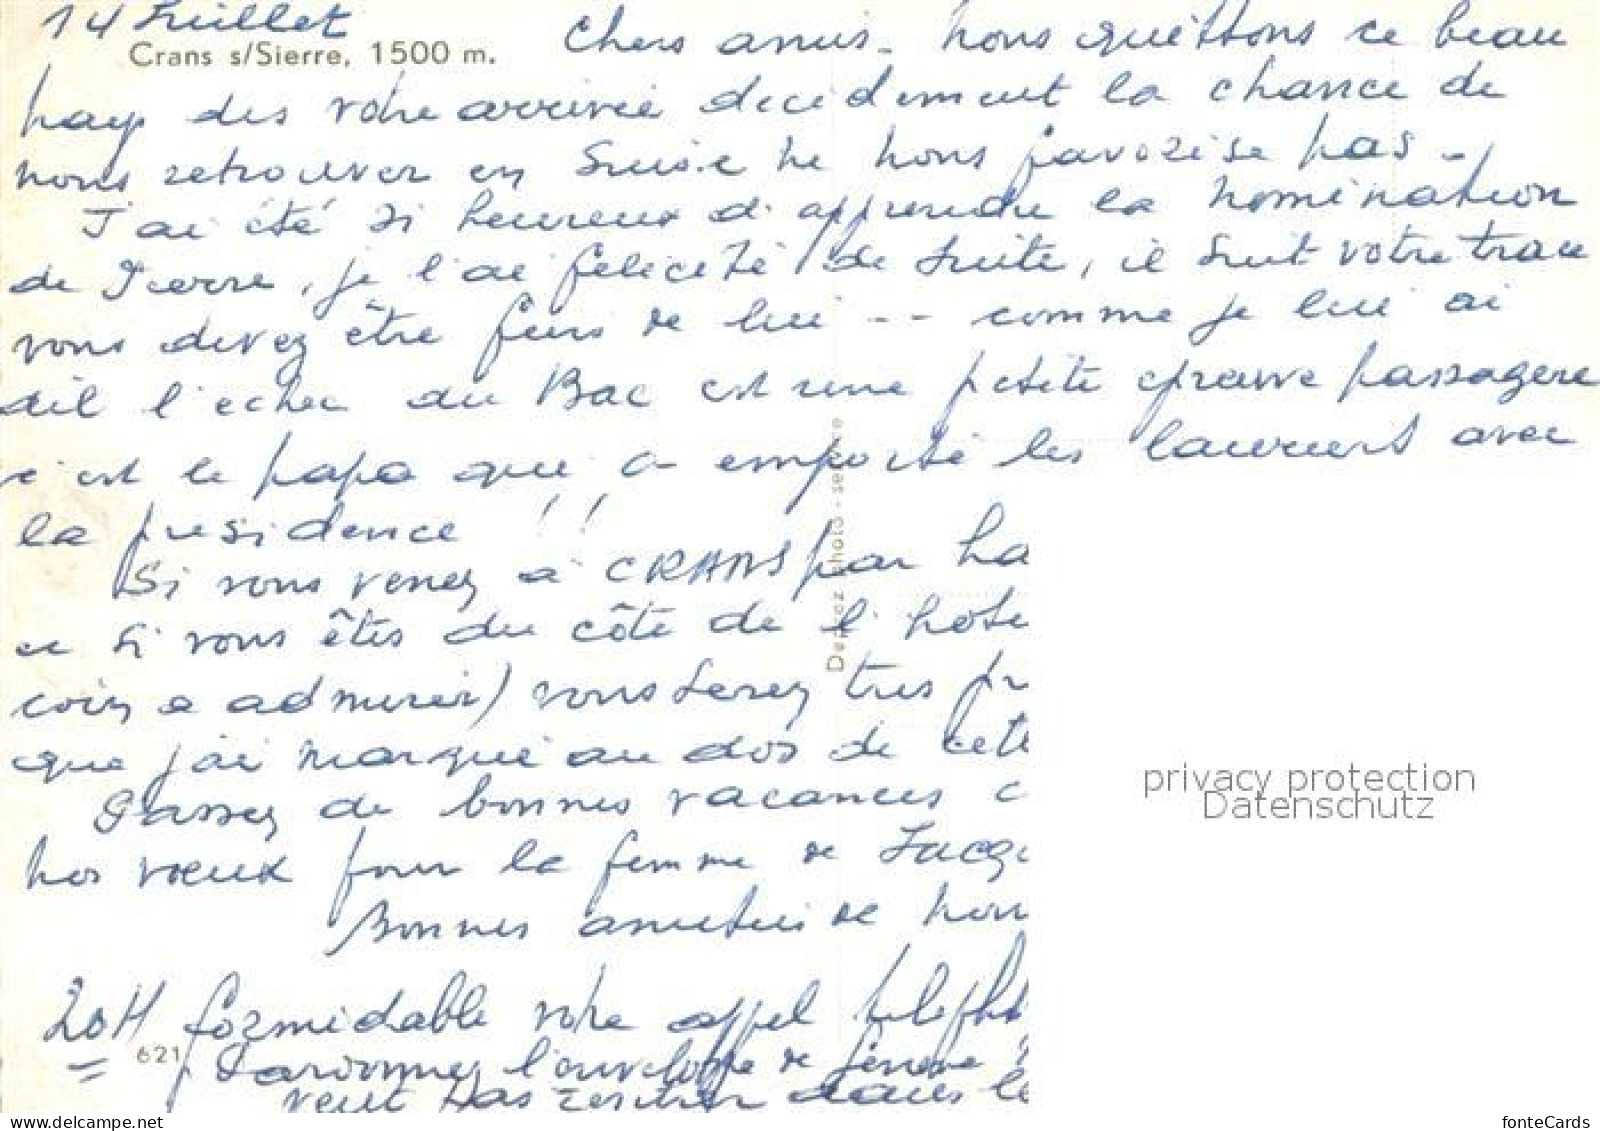 14 Juillet
Crans s/Sierre, 1500 m.
Chers amis. Nous quittons ce beau
pays des votre arrivée decidement la chance de
nous retrouver en Suisse ne nous favorise pas -
J'ai été si heureux d'apprendre la nomination
de Pierre, je l'ai felicité de suite, il suit votre trace
vous devez être fiers de lui -- comme je lui ai
dit l'echec du Bac est une petite epreuve passagere
c'est le papa qui a emporté les lauriers avec
la presidence !!
Si vous venez à CRANS par ha
ou si vous êtes du côté de l'hote
coin a admirer) vous serez tres pr
que j'ai marqué au dos de cette
Passez de bonnes vacances
nos voeux pour la femme de Jacq
Bonnes amities de nou
20H formidable votre appel teleph
Pardonnez l'enveloppe de Geneve
veut pas rentrer dans le
621
Deprez photo-service
privacy protection
Datenschutz
www.delcampe.net
fonteCards